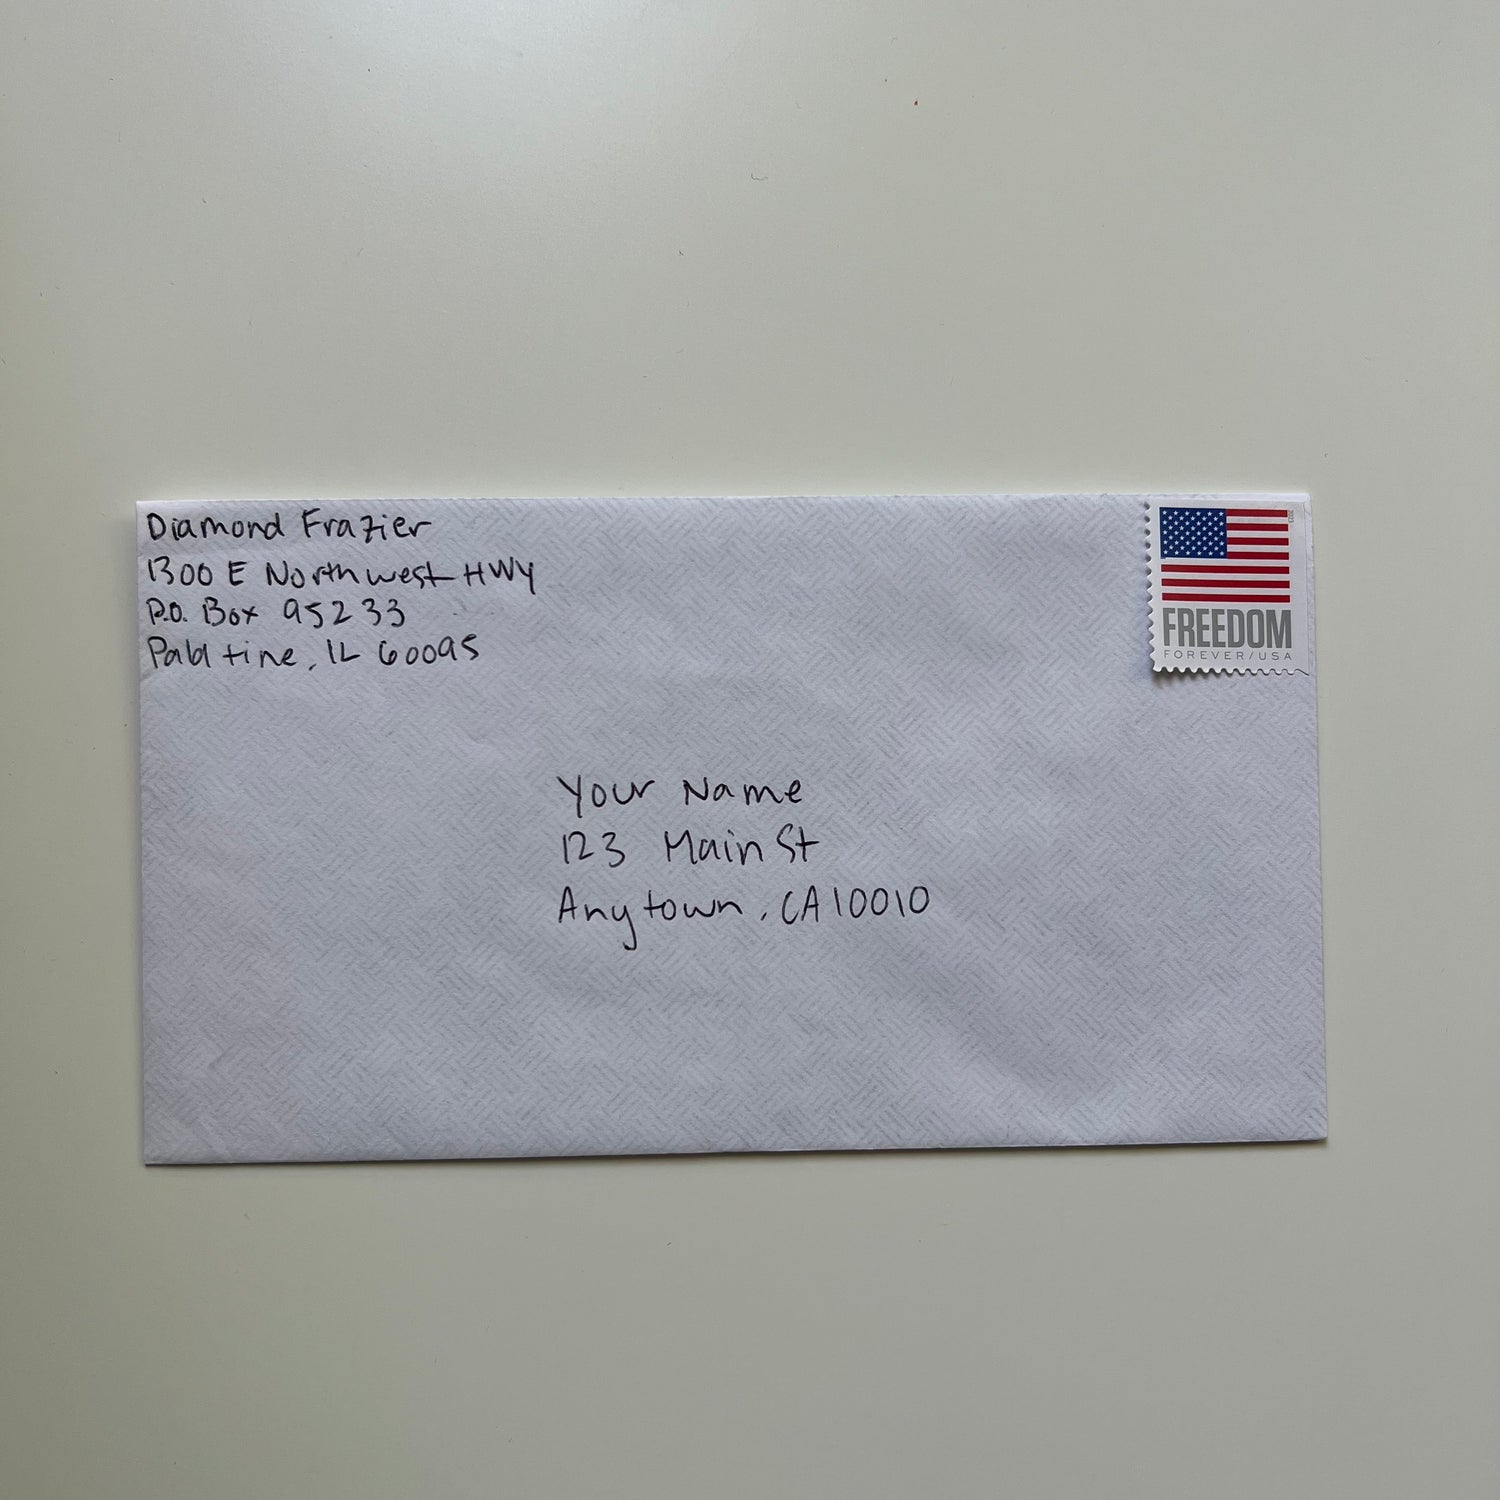 Diamond Frazier
1300 E Northwest HWY
P.O. Box 95233
Palatine, IL 60095
2023
FREEDOM
FOREVER/USA
Your Name
123 Main St
Anytown, CA 10010